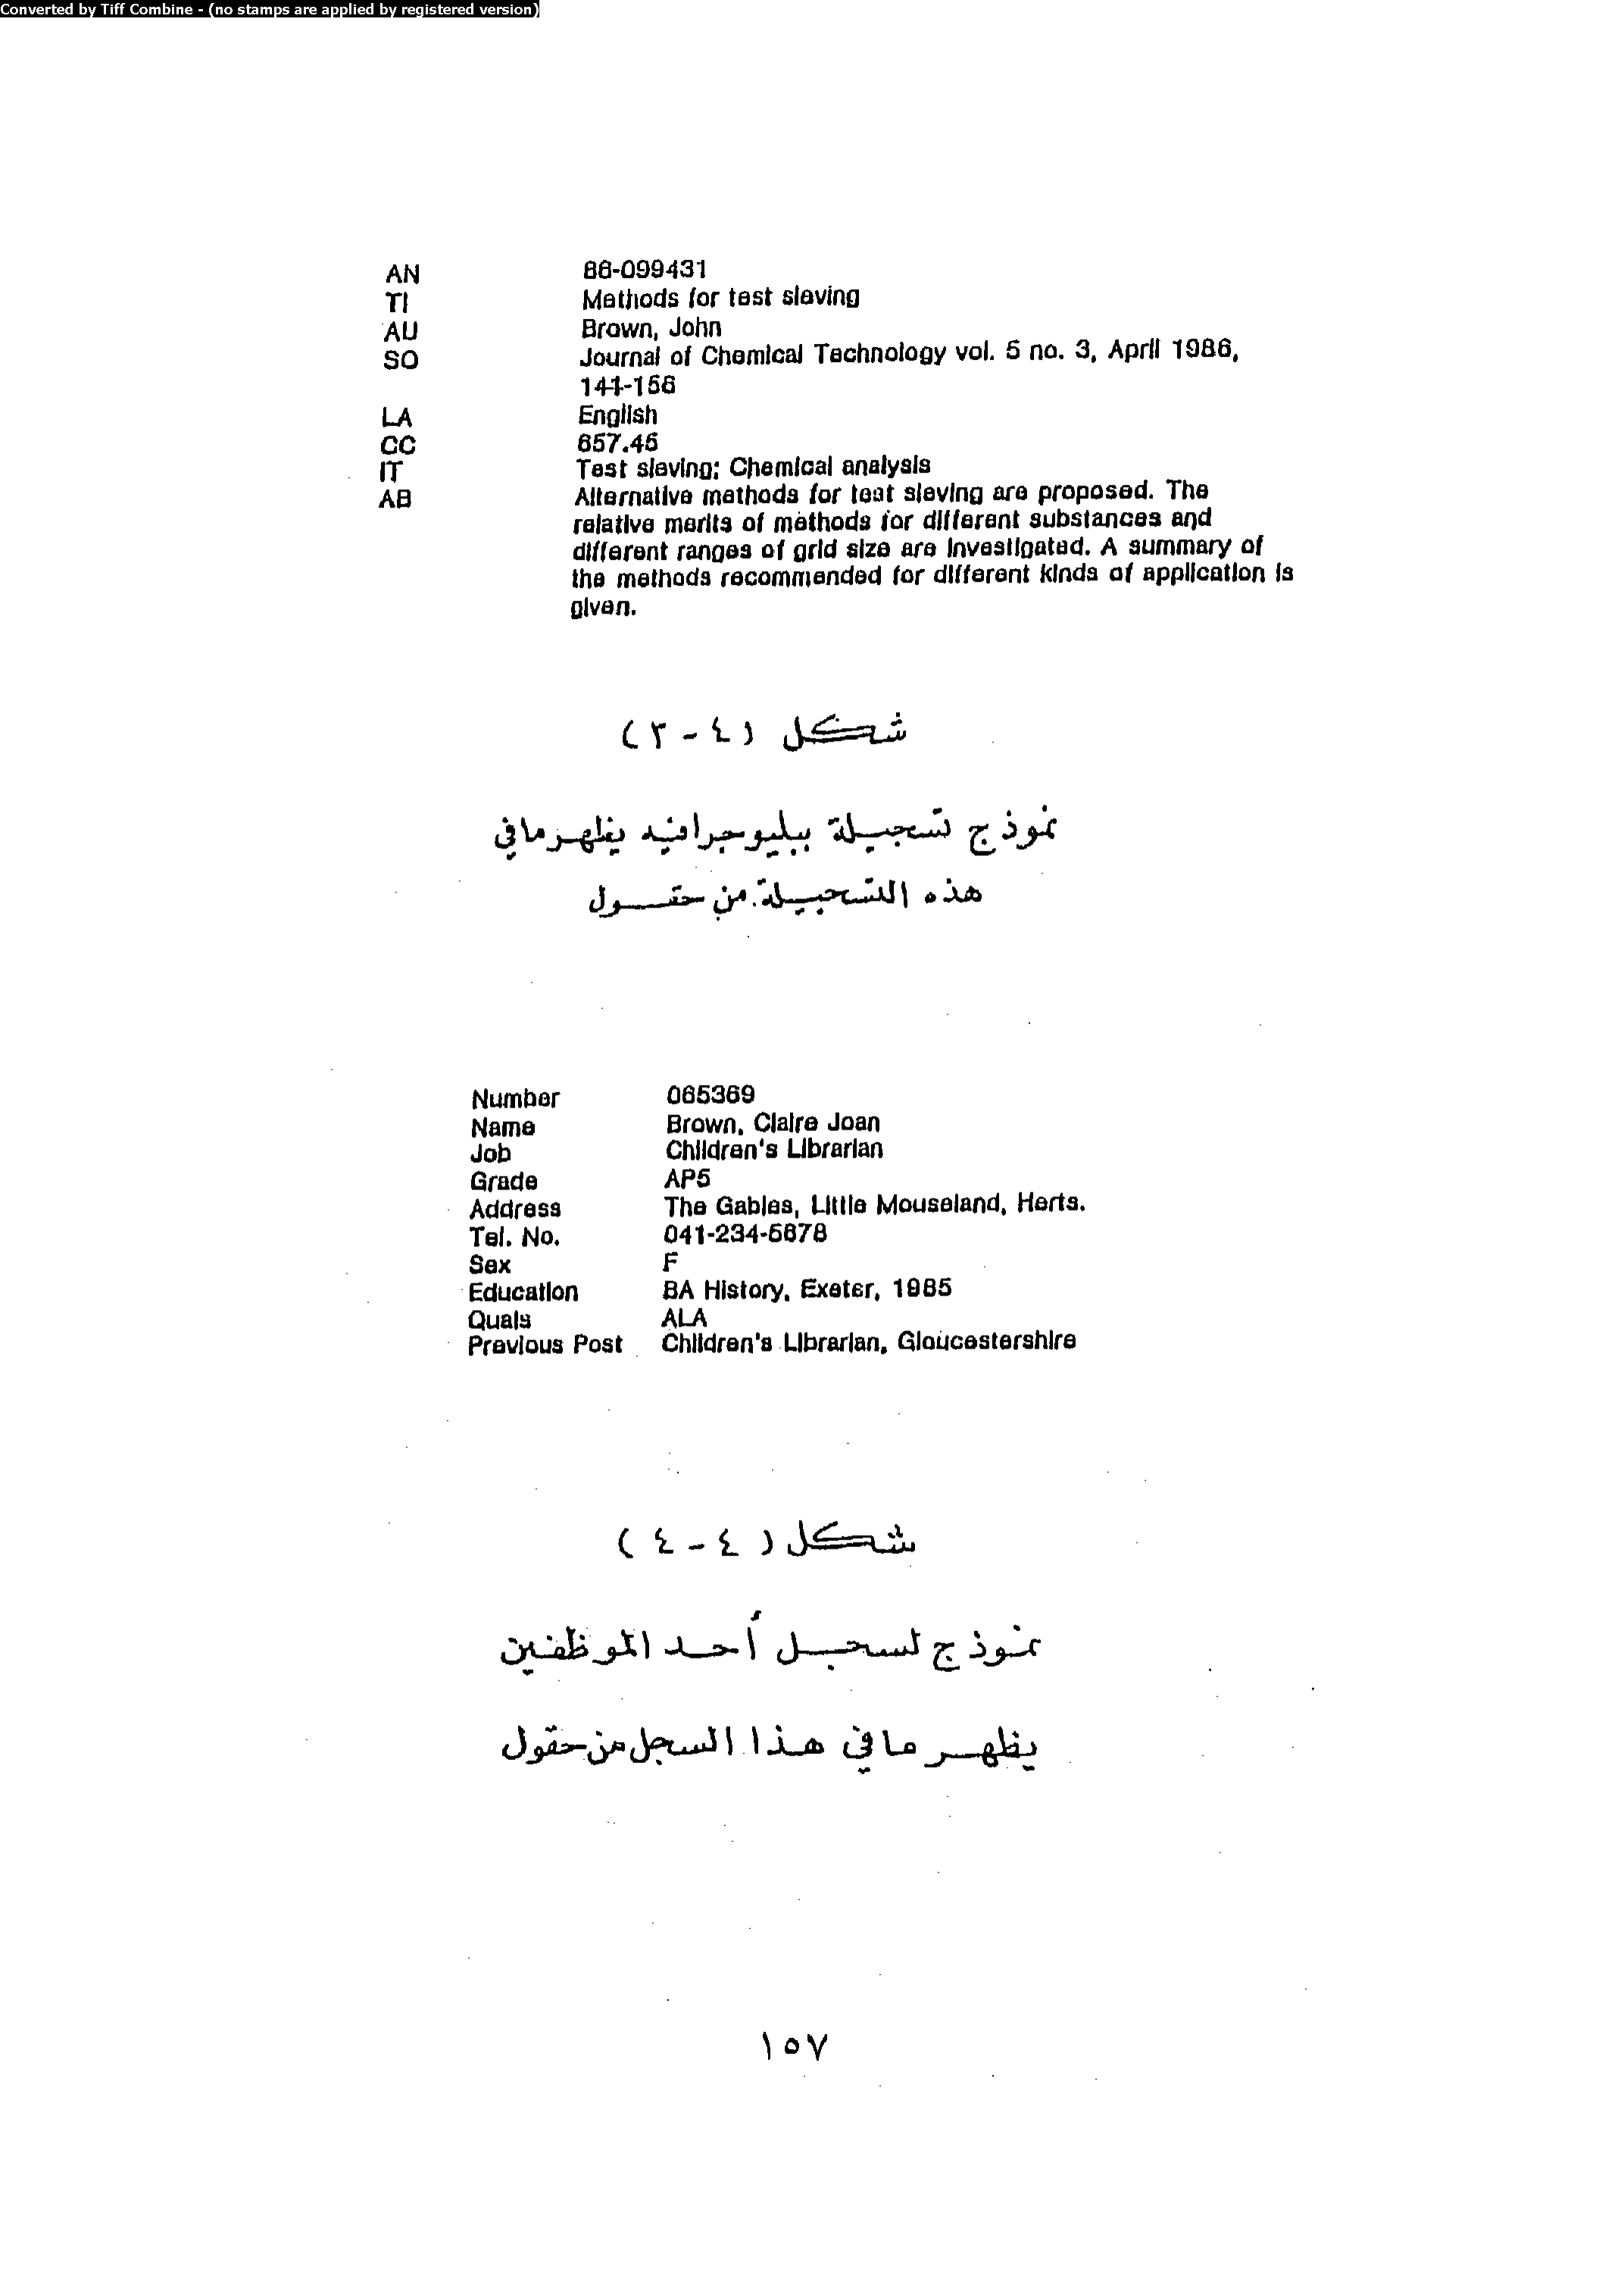 Converted by Tiff Combine - (no stamps are applied by registered version)
AN 86-099431
TI Methods for test sieving
AU Brown, John
SO Journal of Chemical Technology vol. 5 no. 3, April 1986,
141-156
LA English
CC 657.45
IT Test sieving; Chemical analysis
AB Alternative methods for test sieving are proposed. The
relative merits of methods for different substances and
different ranges of grid size are investigated. A summary of
the methods recommended for different kinds of application is
given.
شكل (٤-٣)
نموذج تسجيلة ببليوجرافيه يظهر ما في
هذه التسجيلة من حقول
Number 065369
Name Brown, Claire Joan
Job Children's Librarian
Grade AP5
Address The Gables, Little Mouseland, Herts.
Tel. No. 041-234-5678
Sex F
Education BA History, Exeter, 1985
Quals ALA
Previous Post Children's Librarian, Gloucestershire
شكل (٤-٤)
نموذج لسجل أحد الموظفين
يظهر ما في هذا السجل من حقول
١٥٧